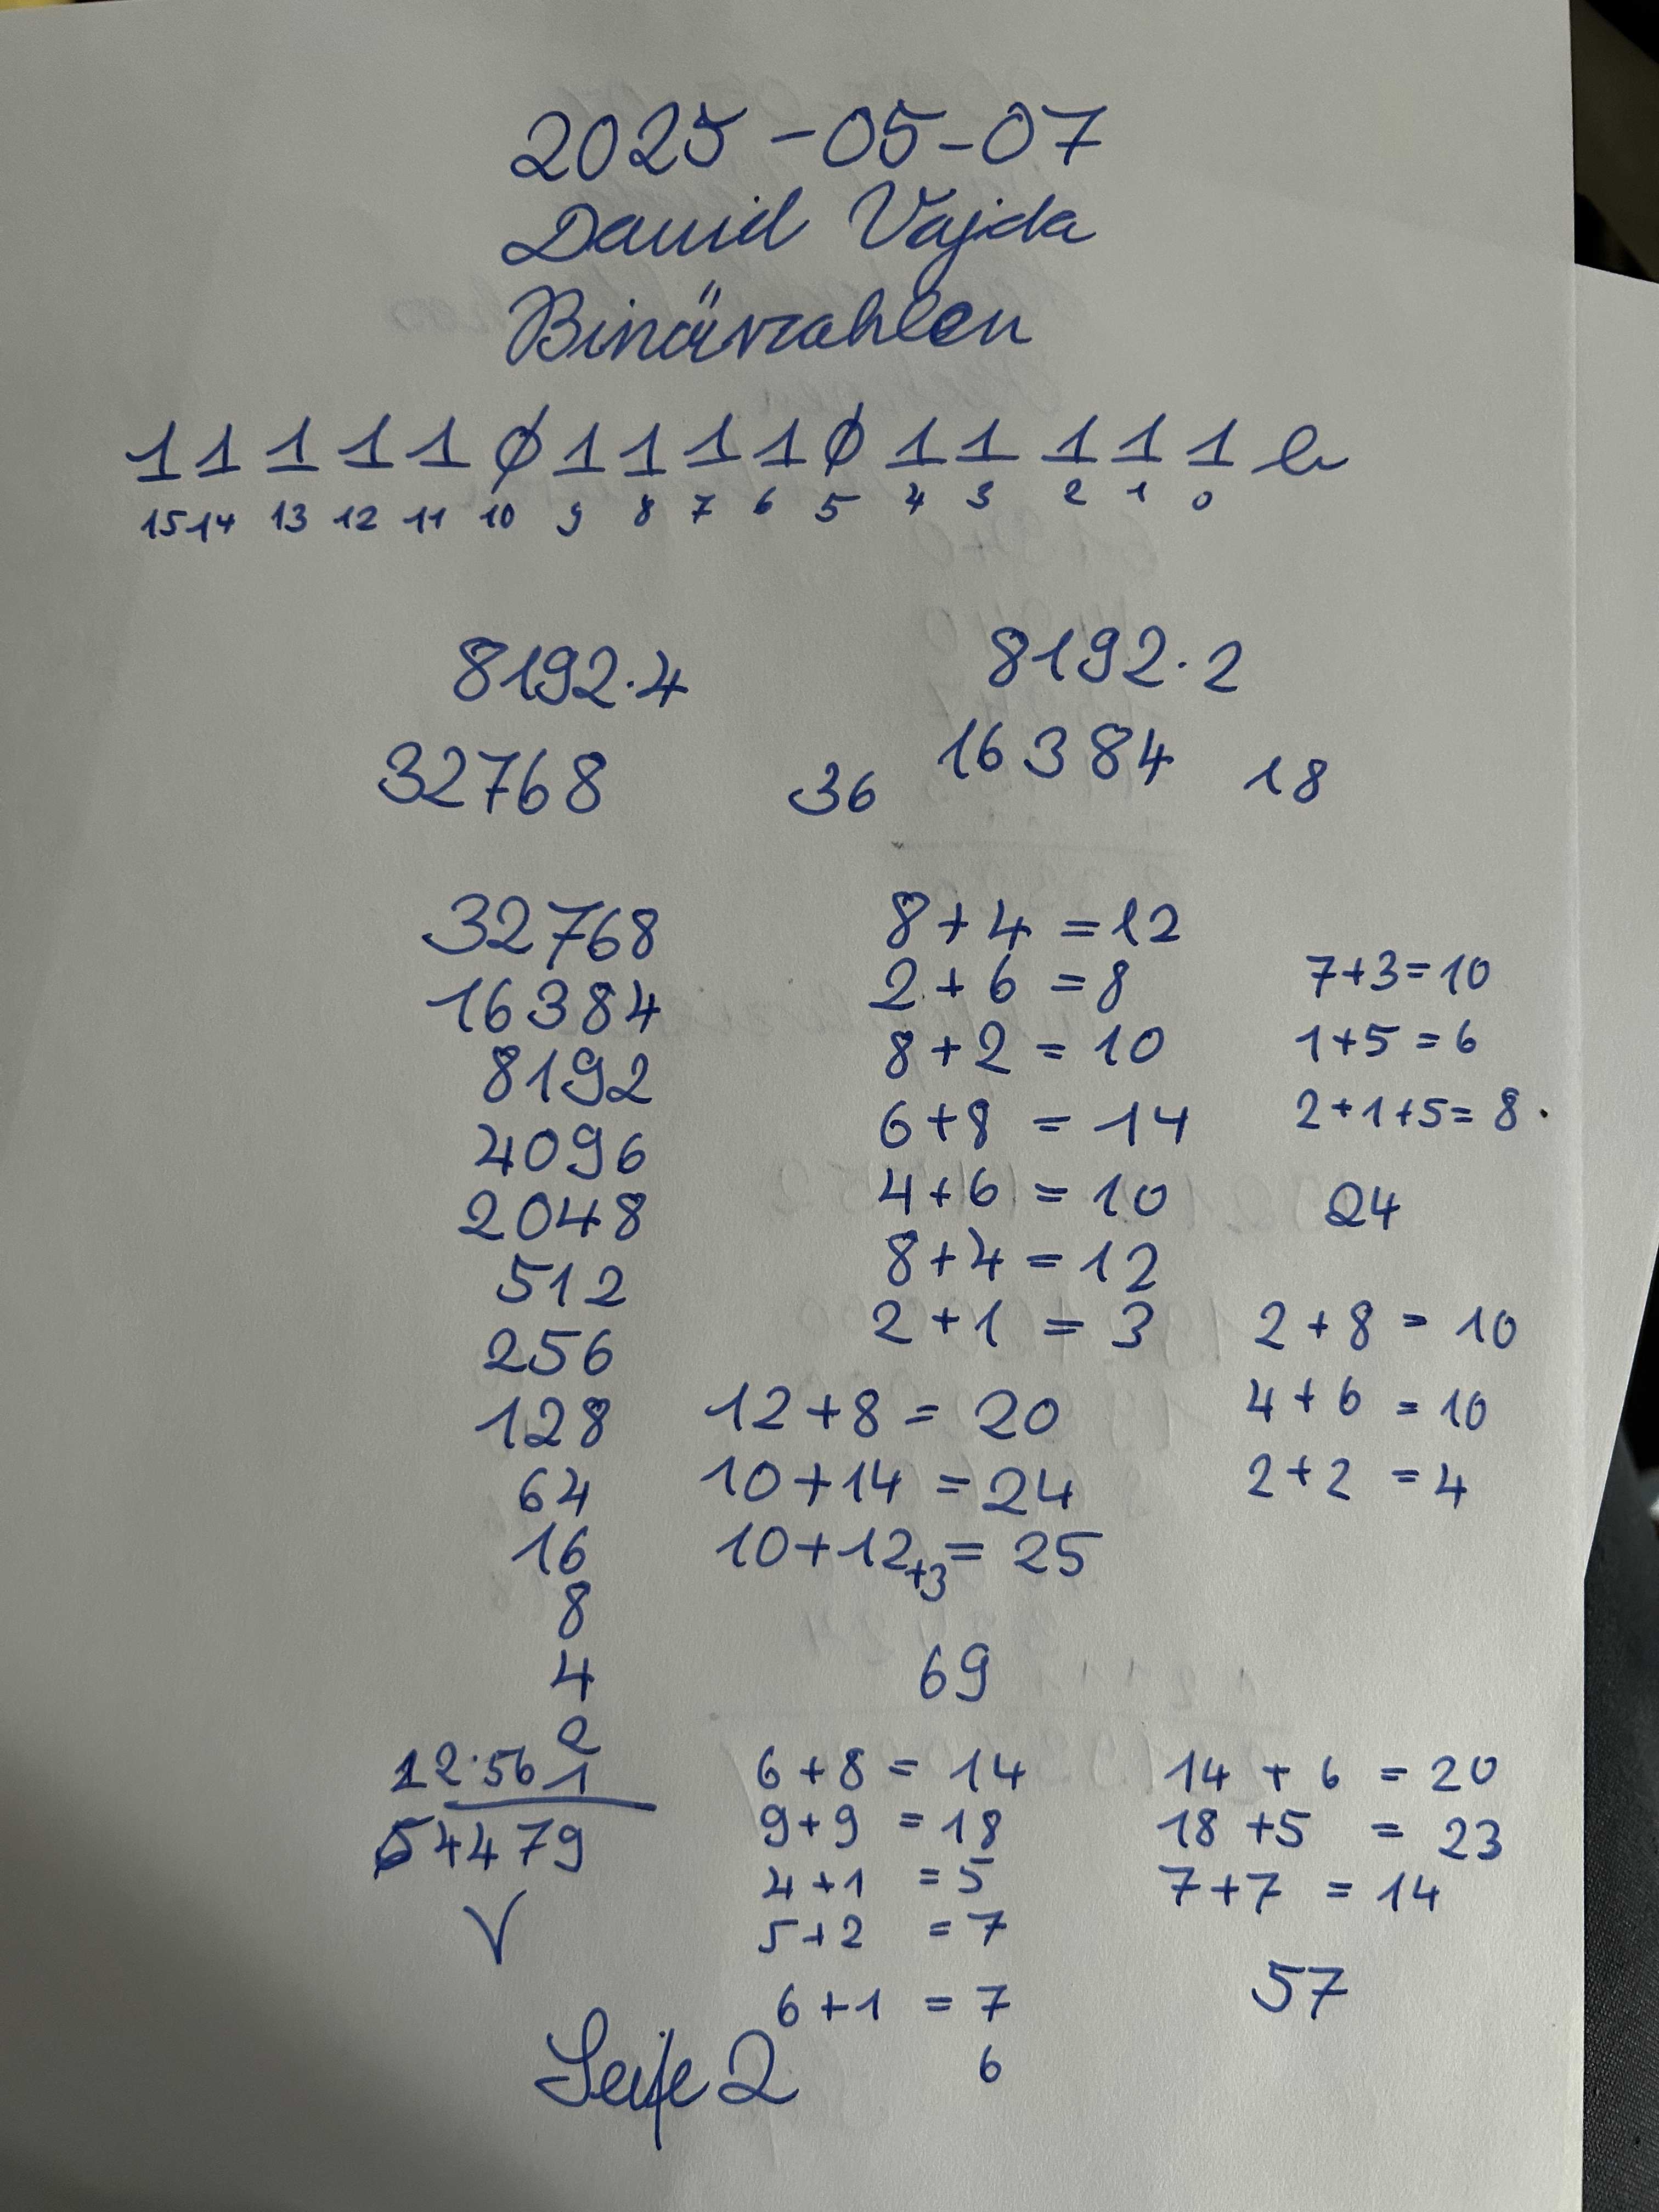 2025-05-07
David Vajda
Binärzahlen
1 1 1 1 1 0 1 1 1 1 0 1 1 1 1 1 b
15 14 13 12 11 10 9 8 7 6 5 4 3 2 1 0
8192·4 8192·2
32768 36 16384 18
32768 8+4 =12
16384 2+6 =8 7+3=10
8192 8+2 = 10 1+5=6
4096 6+8 = 14 2+1+5= 8
2048 4+6 = 10 24
512 8+4 = 12
256 2+1 = 3 2+8 = 10
128 12+8 = 20 4+6 = 10
64 10+14 = 24 2+2 = 4
16 10+12+3= 25
8
4 69
2
12·56 1 6+8 = 14 14 + 6 = 20
54479 9+9 = 18 18 +5 = 23
4+1 = 5 7+7 = 14
5+2 = 7
6+1 = 7 57
6
Seite 2